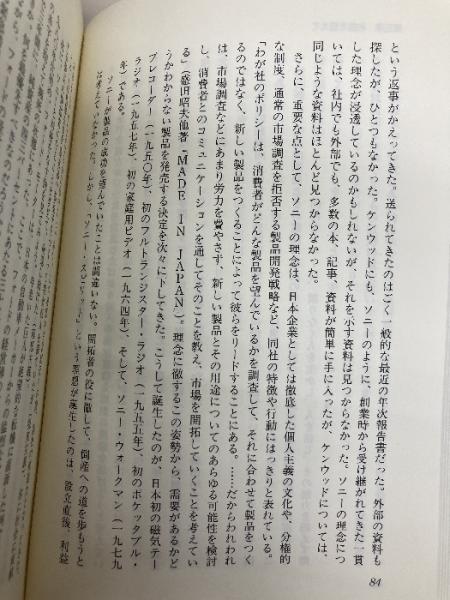 という返事がかえってきた。送られてきたのはごく一般的な最近の年次報告書だった。外部の資料も
探したが、ひとつもなかった。ケンウッドにも、ソニーのように、創業時から受け継がれてきた一貫
した理念が浸透しているのかもしれないが、それを示す資料は見つからなかった。ソニーの理念につ
いては、社内でも外部でも、多数の本、記事、資料が簡単に手に入ったが、ケンウッドについては、
同じような資料はほとんど見つからなかった。
さらに、重要な点として、ソニーの理念は、日本企業としては徹底した個人主義の文化や、分権的
な制度、通常の市場調査を拒否する製品開発戦略など、同社の特徴や行動にはっきりと表れている。
「わが社のポリシーは、消費者がどんな製品を望んでいるかを調査して、それに合わせて製品をつく
るのではなく、新しい製品をつくることによって彼らをリードすることにある。……だからわれわれ
は、市場調査などにあまり労力を費やさず、新しい製品とその用途についてのあらゆる可能性を検討
し、消費者とのコミュニケーションを通してそのことを教え、市場を開拓していくことを考えてい
る」(盛田昭夫他著『MADE IN JAPAN』)。理念に徹するこの姿勢から、需要があるかど
うかわからない製品を発売する決定を次々に下してきた。こうして誕生したのが、日本初の磁気テー
プレコーダー(一九五〇年)、初のフルトランジスター・ラジオ(一九五五年)、初のポケッタブル・
ラジオ(一九五七年)、初の家庭用ビデオ(一九六四年)、そして、ソニー・ウォークマン(一九七九
年)である。
ソニーが製品の成功を望んでいたことは間違いない。開拓者の役に徹して、倒産への道を歩もうと
は考えていなかった。しかし、「ソニー・スピリット」という理想が誕生したのは、設立直後、利益
84